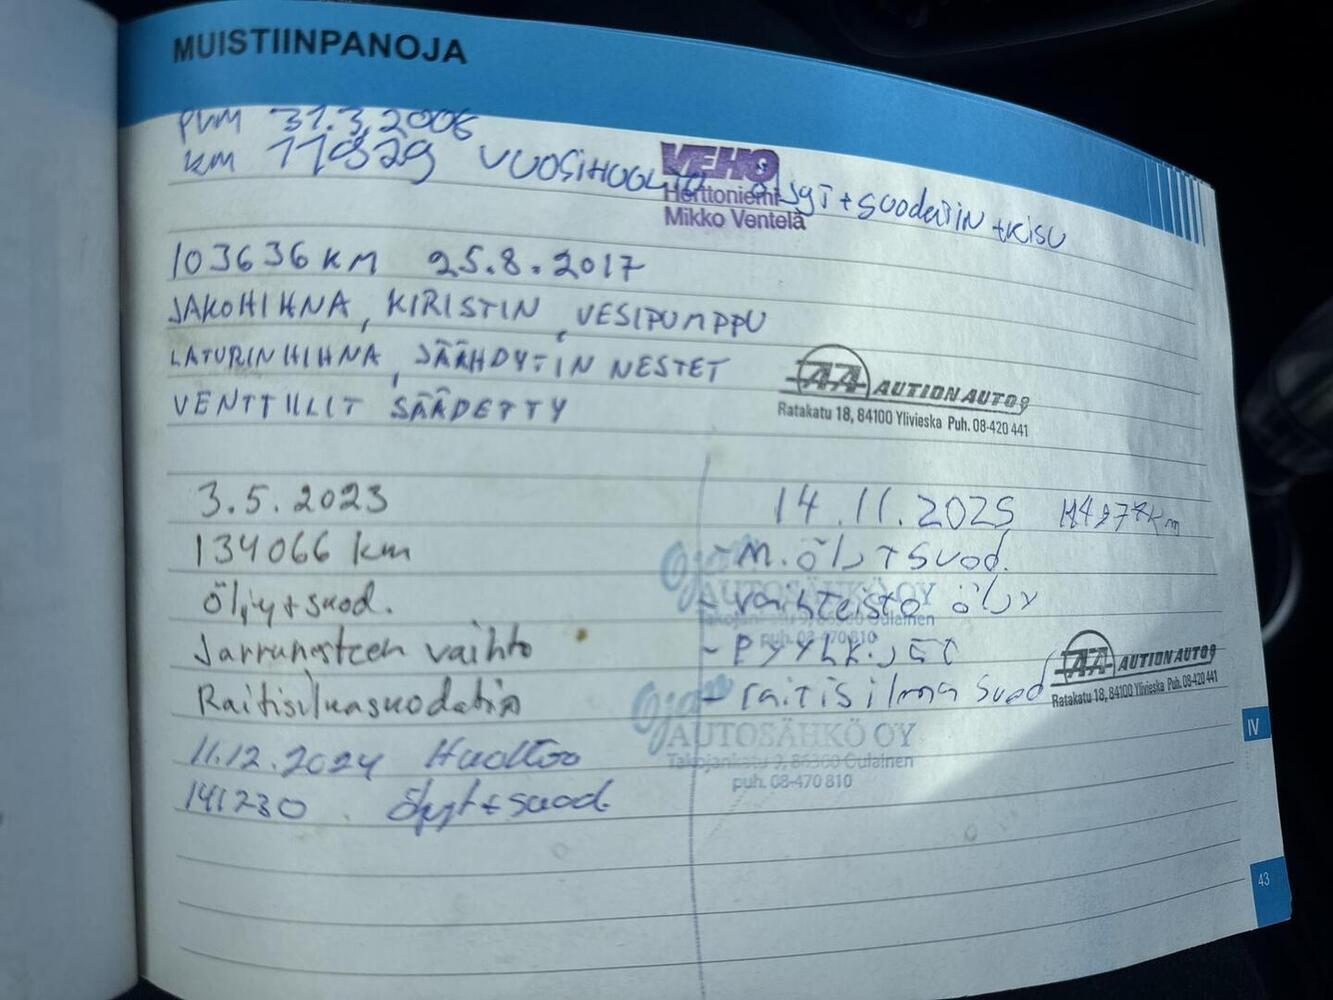 MUISTIINPANOJA
PVM 31.3.2006
KM 110329 VUOSIHUOLTO ÖLJYT + SUODATIN + KISU
VEHO
Herttoniemi
Mikko Ventelä
103636 KM 25.8.2017
JAKOHIHNA, KIRISTIN, VESIPUMPPU
LATURINHIHNA, JÄÄHDYTIN NESTET
VENTTIILIT SÄÄDETTY
AA AUTIONAUTO
Ratakatu 18, 84100 Ylivieska Puh. 08-420 441
3.5.2023
134066 km
Öljy + suod.
Jarrunesteen vaihto
Raitisilmasuodatin
11.12.2024 Huolto
141230 Öljyt + suod.
14.11.2025
- M. ÖLJ + SUOD.
- vaihteisto öljy
- PYYHKIJET
- raitisilma suod
AUTOSÄHKÖ OY
Oulainen
puh. 08-470 810
AA AUTIONAUTO
Ratakatu 18, 84100 Ylivieska Puh. 08-420 441
AUTOSÄHKÖ OY
86300 Oulainen
puh. 08-470 810
IV
43